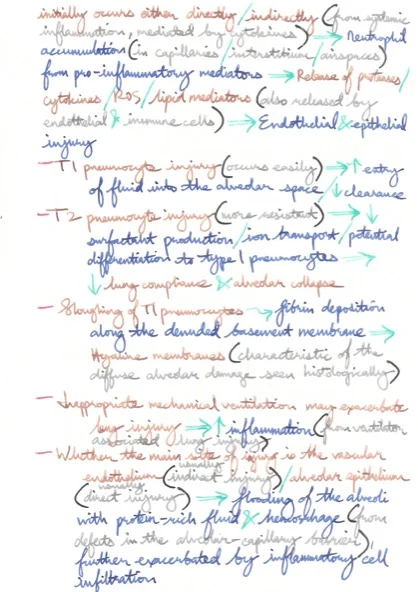 initially occurs either directly/indirectly (from systemic
inflammation, mediated by cytokines) → Neutrophil
accumulation (in capillaries/interstitium/airspaces)
from pro-inflammatory mediators → Release of proteases/
cytokines/ROS/lipid mediators (also released by
endothelial & immune cells) → Endothelial & epithelial
injury
- T1 pneumocyte injury (occurs easily) → ↑ entry
of fluid into the alveolar space/↓ clearance
- T2 pneumocyte injury (more resistant) → ↓
surfactant production/ion transport/potential
differentiation to type 1 pneumocytes →
↓ lung compliance & alveolar collapse
- Sloughing of T1 pneumocytes → fibrin deposition
along the denuded basement membrane →
Hyaline membranes (characteristic of the
diffuse alveolar damage seen histologically)
- Inappropriate mechanical ventilation may exacerbate
lung injury → ↑ inflammation (from ventilator
associated lung injury)
- Whether the main site of injury is the vascular
endothelium (usually indirect injury)/alveolar epithelium
(usually direct injury) → flooding of the alveoli
with protein-rich fluid & hemorrhage (from
defects in the alveolar-capillary barrier),
further exacerbated by inflammatory cell
infiltration